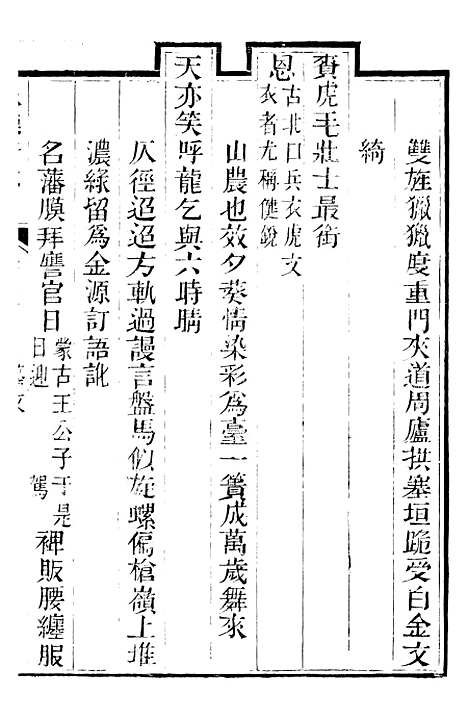 雙旌獵獵度重門夾道周廬拱塞垣跪受白金文
綺
賚虎毛壯士最銜
恩古北口兵衣虎文
衣者尤稱健銳
山農也效夕葵情染彩爲臺一簣成萬歲舞來
天亦笑呼龍乞與六時晴
仄徑迢迢方軌過謾言盤馬似旋螺偏槍嶺上堆
濃綠留爲金源訂語訛
名藩膜拜官日蒙古王公子于是
日迎 駕
裨販腰纏服